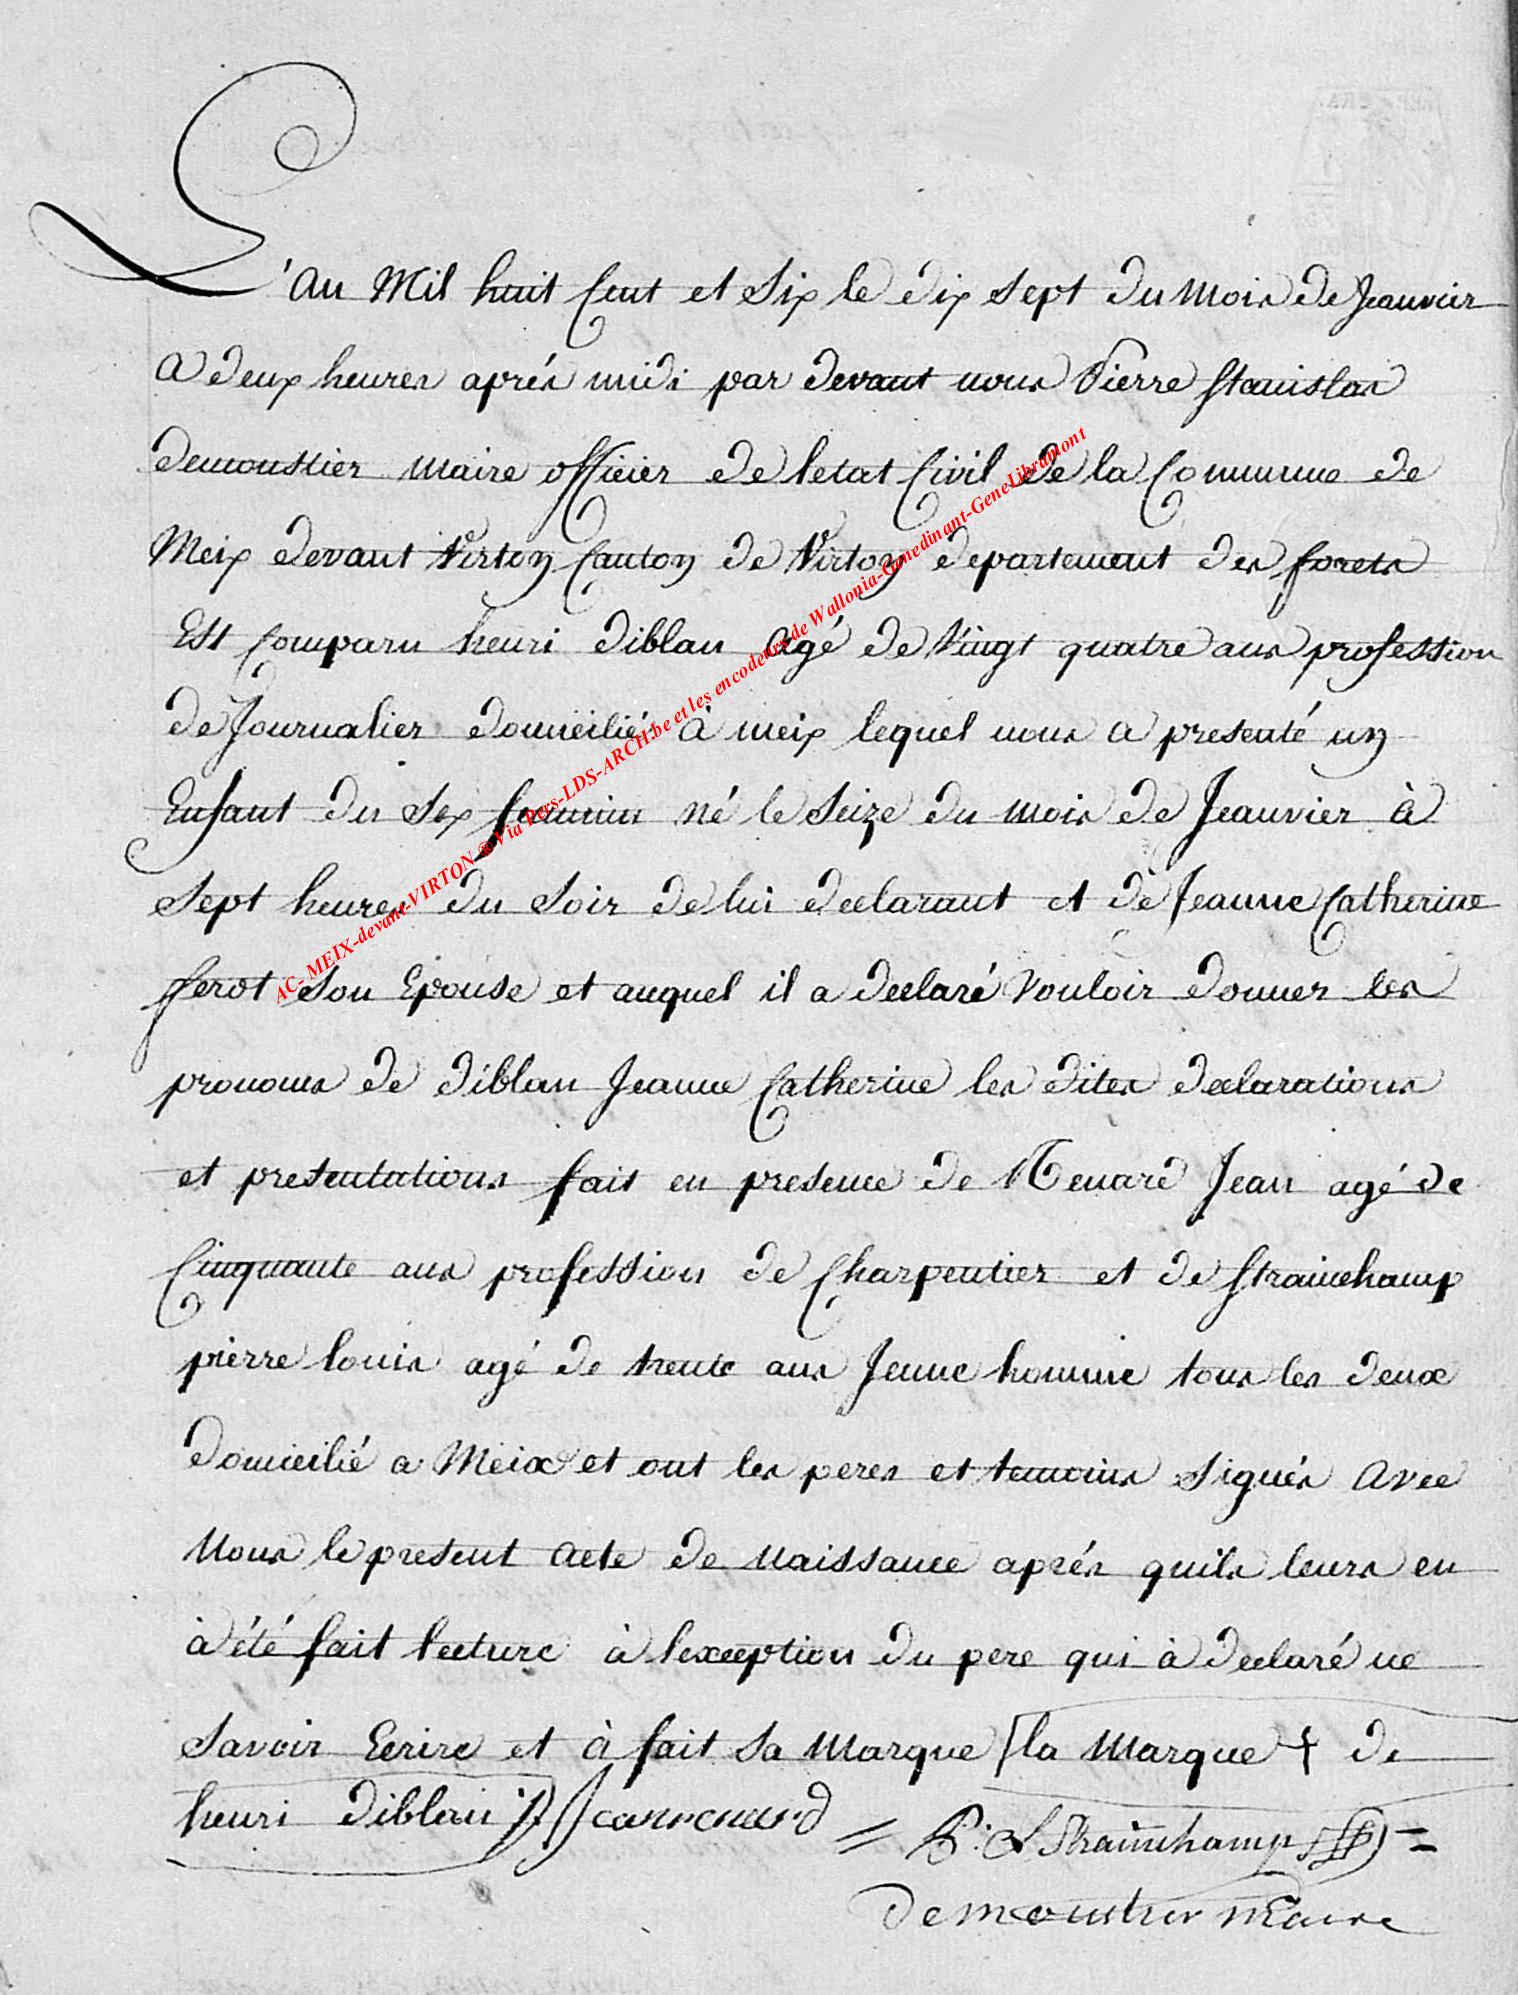 L'an Mil huit Cent et Six le dix sept du mois de Jeanvier
a deux heures aprés midi par devant nous Pierre Stanislas
demoustier maire officier de letat Civil de la Commune de
Meix devant Virton Canton de Virton departement des forets
Est Comparu henri diblan agé de Vingt quatre ans profession
de Journalier domicilié à meix lequel nous a presenté un
Enfant du Sex feminin né le Seize du mois de Jeanvier à
Sept heures du Soir de lui declarant et de Jeanne Catherine
ferot Son Epouse et auquel il a declaré Vouloir donner les
pronoms de diblan Jeanne Catherine les dites declarations
et presentations fait en presence de Renard Jean agé de
Cinquante ans profession de Charpentier et de Strainchamp
pierre louis agé de trente ans Jeune homme tous les deux
domicilié a Meix et ont les peres et temoins Signés avec
Nous le present acte de naissance aprés quils leurs en
à été fait lecture à lexception du pere qui à declaré ne
Savoir Ecrire et à fait Sa Marque la Marque + de
henri diblan Jean renard = P: L Strainchamp =
demoustier Maire
AC- MEIX-devant-VIRTON ® Via Pers-LDS-ARCH.be et les encodeurs de Wallonia-Genedinant-GeneLibramont